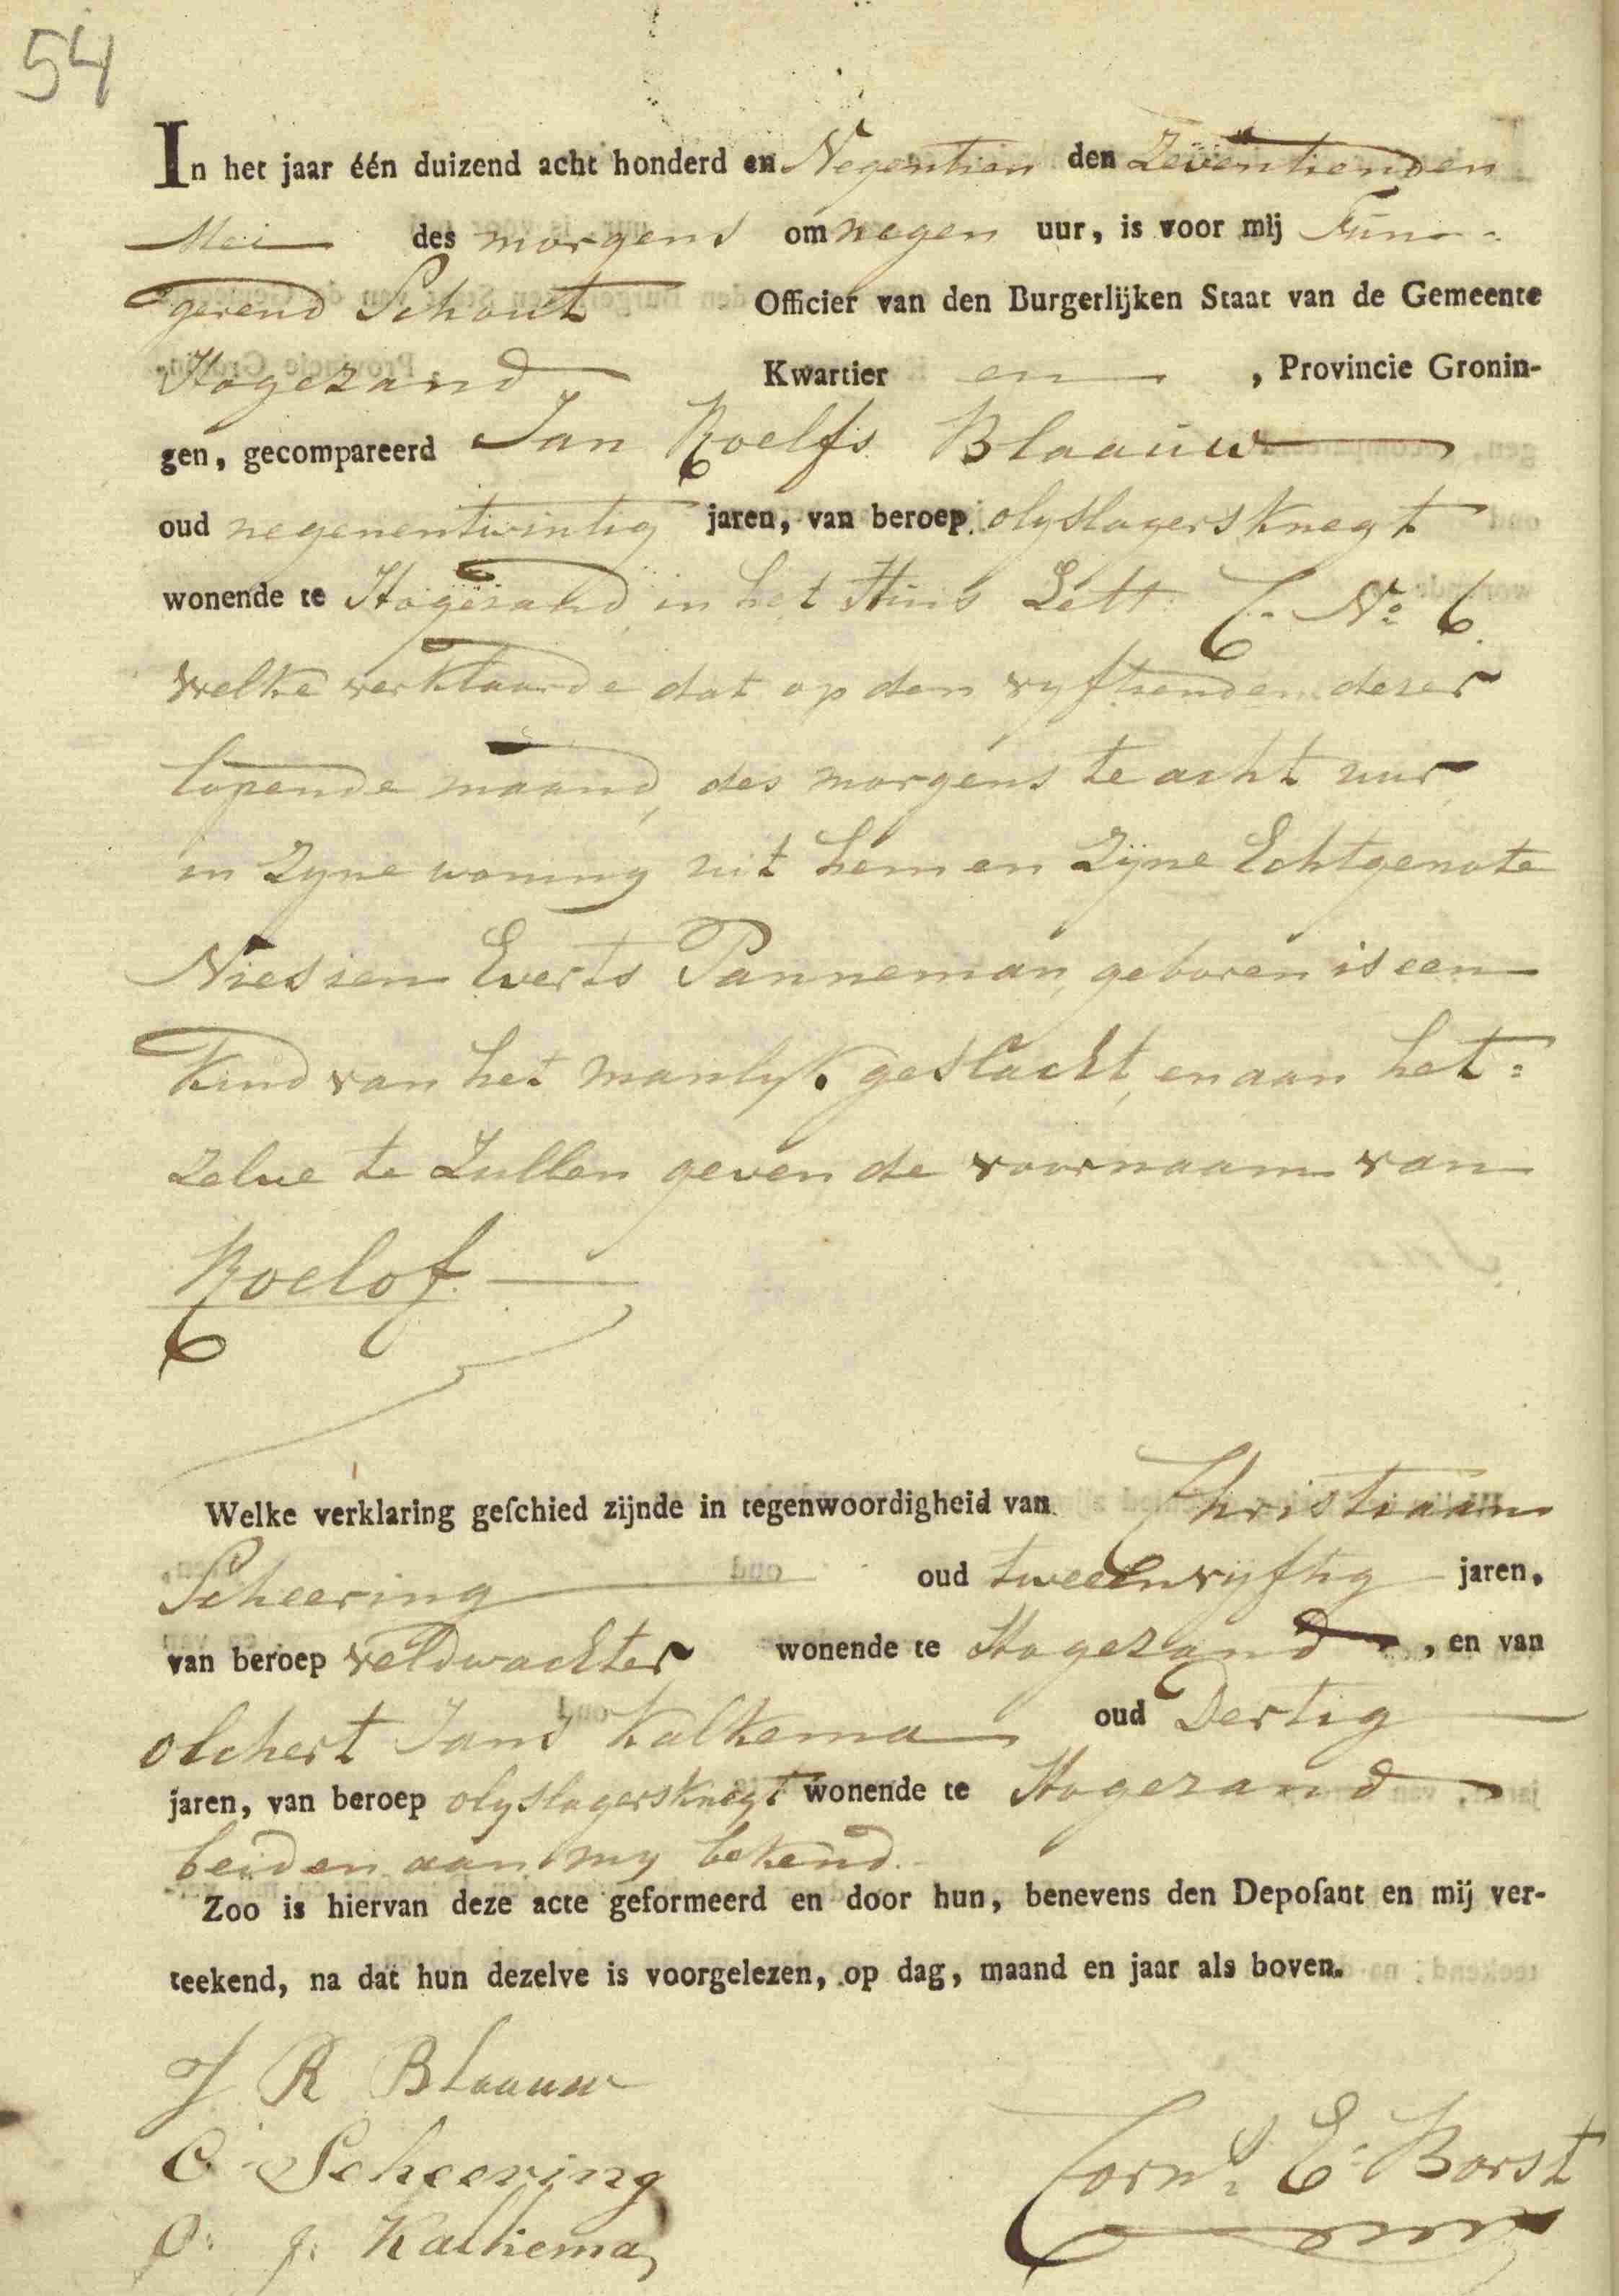 54
In het jaar één duizend acht honderd en Negentien den Zeventienden
Mei des morgens om negen uur, is voor mij Fun-
gerend Schout Officier van den Burgerlijken Staat van de Gemeente
Hogezand Kwartier en , Provincie Gronin-
gen, gecompareerd Jan Roelfs Blaauw
oud negenentwintig jaren, van beroep olyslagersknegt
wonende te Hogezand in het Huis Lett C. No 6.
welke verklaarde dat op den vyftienden dezer
lopende maand, des morgens te acht uur,
in Zyne woning uit hem en Zyne Echtgenote
Niessien Everts Panneman, geboren is een
Kind van het manlyk geslacht, en aan het=
Zelve te Zullen geven de voornaam van
Roelof.
Welke verklaring geſchied zijnde in tegenwoordigheid van Christiaan
Scheering oud tweeenvyftig jaren,
van beroep veldwachter wonende te Hogezand , en van
olchert Jans Kalkema oud Dertig
jaren, van beroep olyslagersknegt wonende te Hogezand
beiden aan my bekend.
Zoo is hiervan deze acte geformeerd en door hun, benevens den Depoſant en mij ver-
teekend, na dat hun dezelve is voorgelezen, op dag, maand en jaar als boven.
J R Blaauw
C Scheering
O: J: Kalkema
Corns. E: Borst